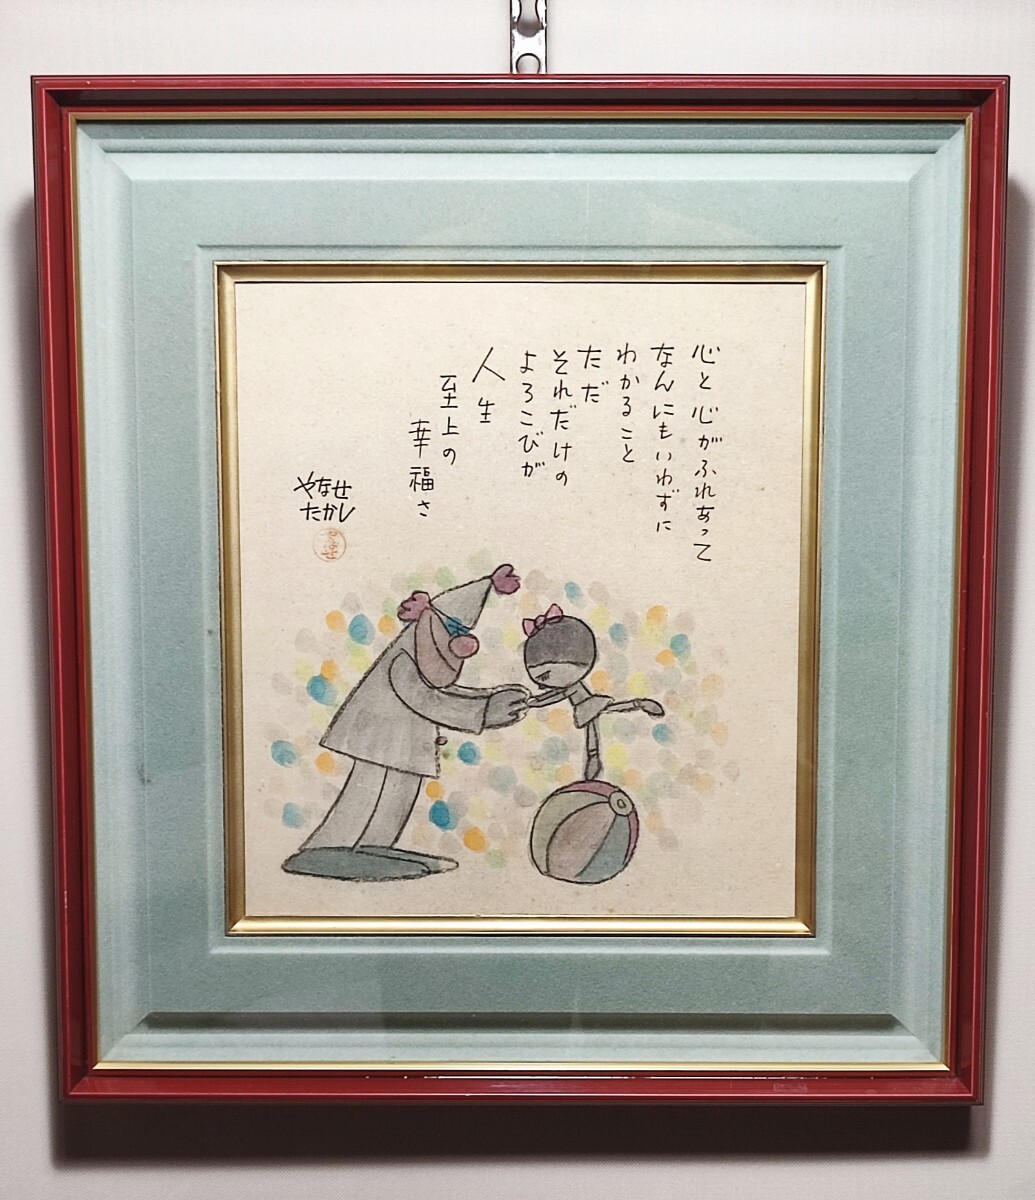 心と心がふれあって
なんにもいわずに
わかること
ただ
それだけの
よろこびが
人生
至上の
幸福さ
やなせ
たかし
やなせ